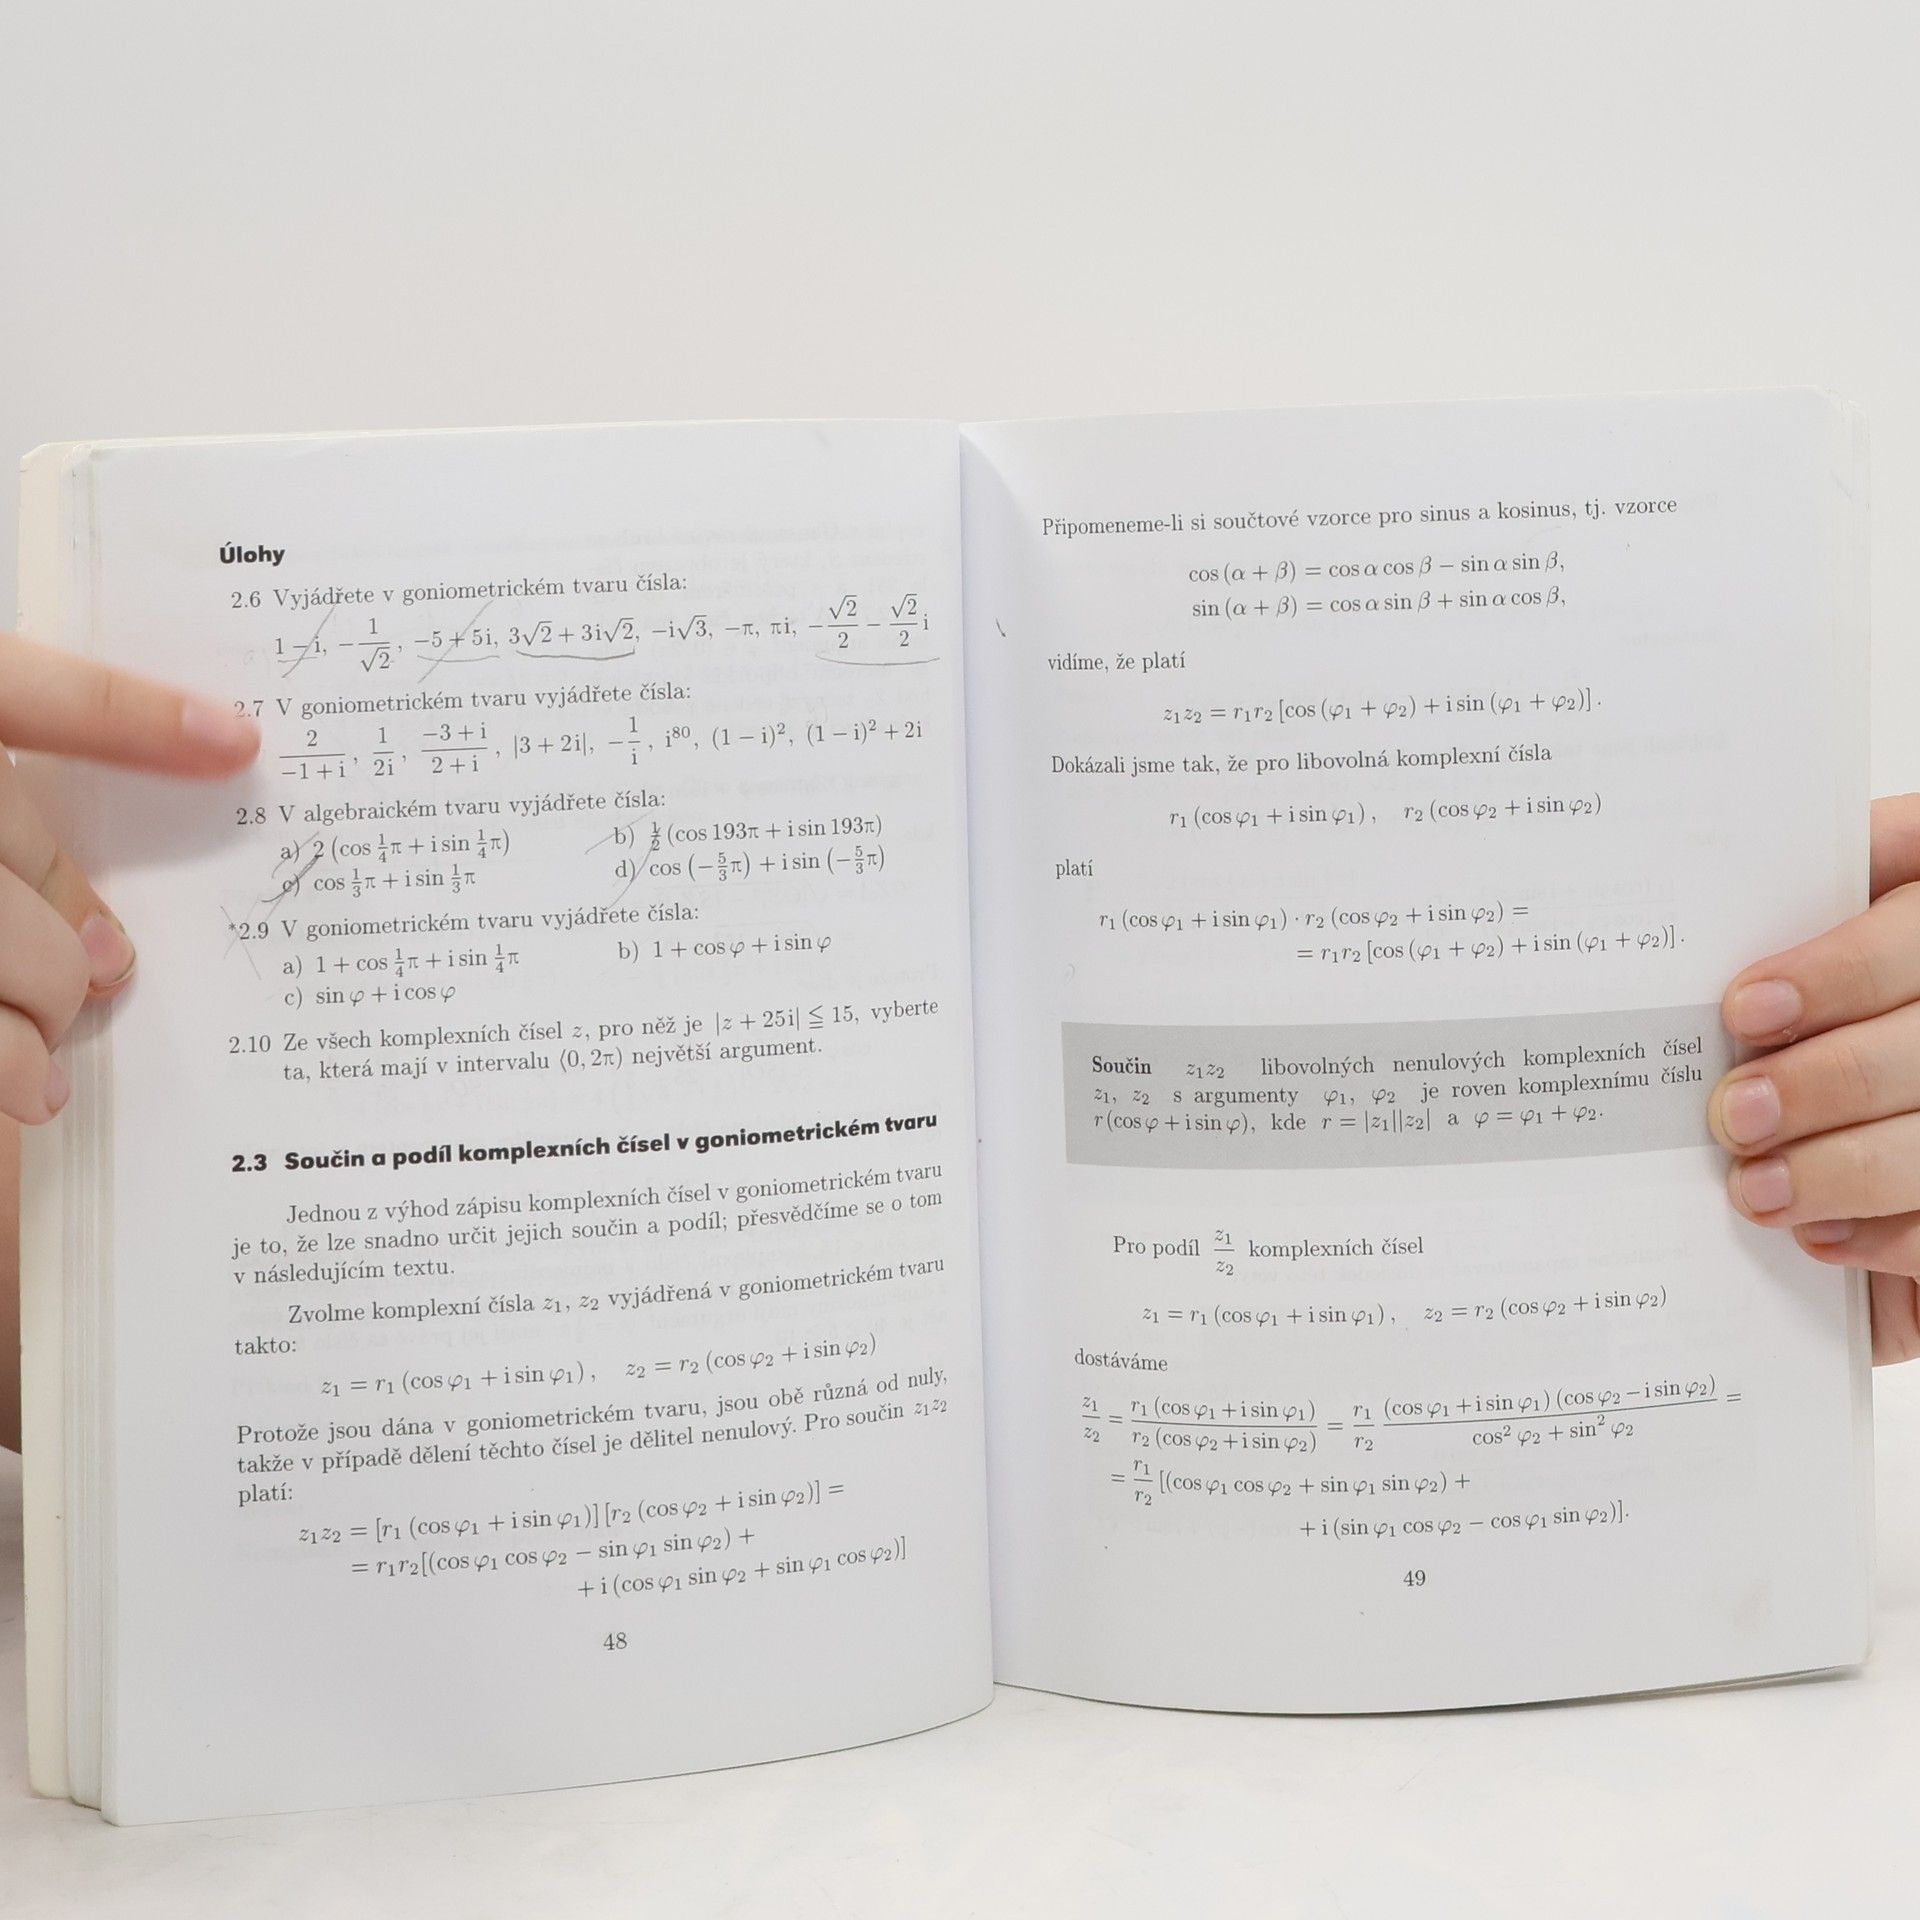 Úlohy
2.6 Vyjádřete v goniometrickém tvaru čísla:
1 − i, −1/√2, −5 + 5i, 3√2 + 3i√2, −i√3, −π, πi, −√2/2 − √2/2 i
2.7 V goniometrickém tvaru vyjádřete čísla:
2/(−1 + i), 1/2i, (−3 + i)/(2 + i), |3 + 2i|, −1/i, i⁸⁰, (1 − i)², (1 − i)² + 2i
2.8 V algebraickém tvaru vyjádřete čísla:
a) 2 (cos ¼π + i sin ¼π) b) ½ (cos 193π + i sin 193π)
c) cos ⅓π + i sin ⅓π d) cos (−5/3π) + i sin (−5/3π)
*2.9 V goniometrickém tvaru vyjádřete čísla:
a) 1 + cos ¼π + i sin ¼π b) 1 + cos φ + i sin φ
c) sin φ + i cos φ
2.10 Ze všech komplexních čísel z, pro něž je |z + 25i| ≦ 15, vyberte
ta, která mají v intervalu ⟨0, 2π) největší argument.
2.3 Součin a podíl komplexních čísel v goniometrickém tvaru
Jednou z výhod zápisu komplexních čísel v goniometrickém tvaru
je to, že lze snadno určit jejich součin a podíl; přesvědčíme se o tom
v následujícím textu.
Zvolme komplexní čísla z₁, z₂ vyjádřená v goniometrickém tvaru
takto:
z₁ = r₁ (cos φ₁ + i sin φ₁), z₂ = r₂ (cos φ₂ + i sin φ₂)
Protože jsou dána v goniometrickém tvaru, jsou obě různá od nuly,
takže v případě dělení těchto čísel je dělitel nenulový. Pro součin z₁z₂
platí:
z₁z₂ = [r₁ (cos φ₁ + i sin φ₁)] [r₂ (cos φ₂ + i sin φ₂)] =
= r₁r₂[(cos φ₁ cos φ₂ − sin φ₁ sin φ₂) +
+ i (cos φ₁ sin φ₂ + sin φ₁ cos φ₂)]
48
Připomeneme-li si součtové vzorce pro sinus a kosinus, tj. vzorce
cos (α + β) = cos α cos β − sin α sin β,
sin (α + β) = cos α sin β + sin α cos β,
vidíme, že platí
z₁z₂ = r₁r₂ [cos (φ₁ + φ₂) + i sin (φ₁ + φ₂)].
Dokázali jsme tak, že pro libovolná komplexní čísla
r₁ (cos φ₁ + i sin φ₁), r₂ (cos φ₂ + i sin φ₂)
platí
r₁ (cos φ₁ + i sin φ₁) · r₂ (cos φ₂ + i sin φ₂) =
= r₁r₂ [cos (φ₁ + φ₂) + i sin (φ₁ + φ₂)].
Součin z₁z₂ libovolných nenulových komplexních čísel
z₁, z₂ s argumenty φ₁, φ₂ je roven komplexnímu číslu
r (cos φ + i sin φ), kde r = |z₁||z₂| a φ = φ₁ + φ₂.
Pro podíl z₁/z₂ komplexních čísel
z₁ = r₁ (cos φ₁ + i sin φ₁), z₂ = r₂ (cos φ₂ + i sin φ₂)
dostáváme
z₁/z₂ = r₁ (cos φ₁ + i sin φ₁)/r₂ (cos φ₂ + i sin φ₂) = r₁/r₂ (cos φ₁ + i sin φ₁) (cos φ₂ − i sin φ₂)/(cos² φ₂ + sin² φ₂) =
= r₁/r₂ [(cos φ₁ cos φ₂ + sin φ₁ sin φ₂) +
+ i (sin φ₁ cos φ₂ − cos φ₁ sin φ₂)].
49